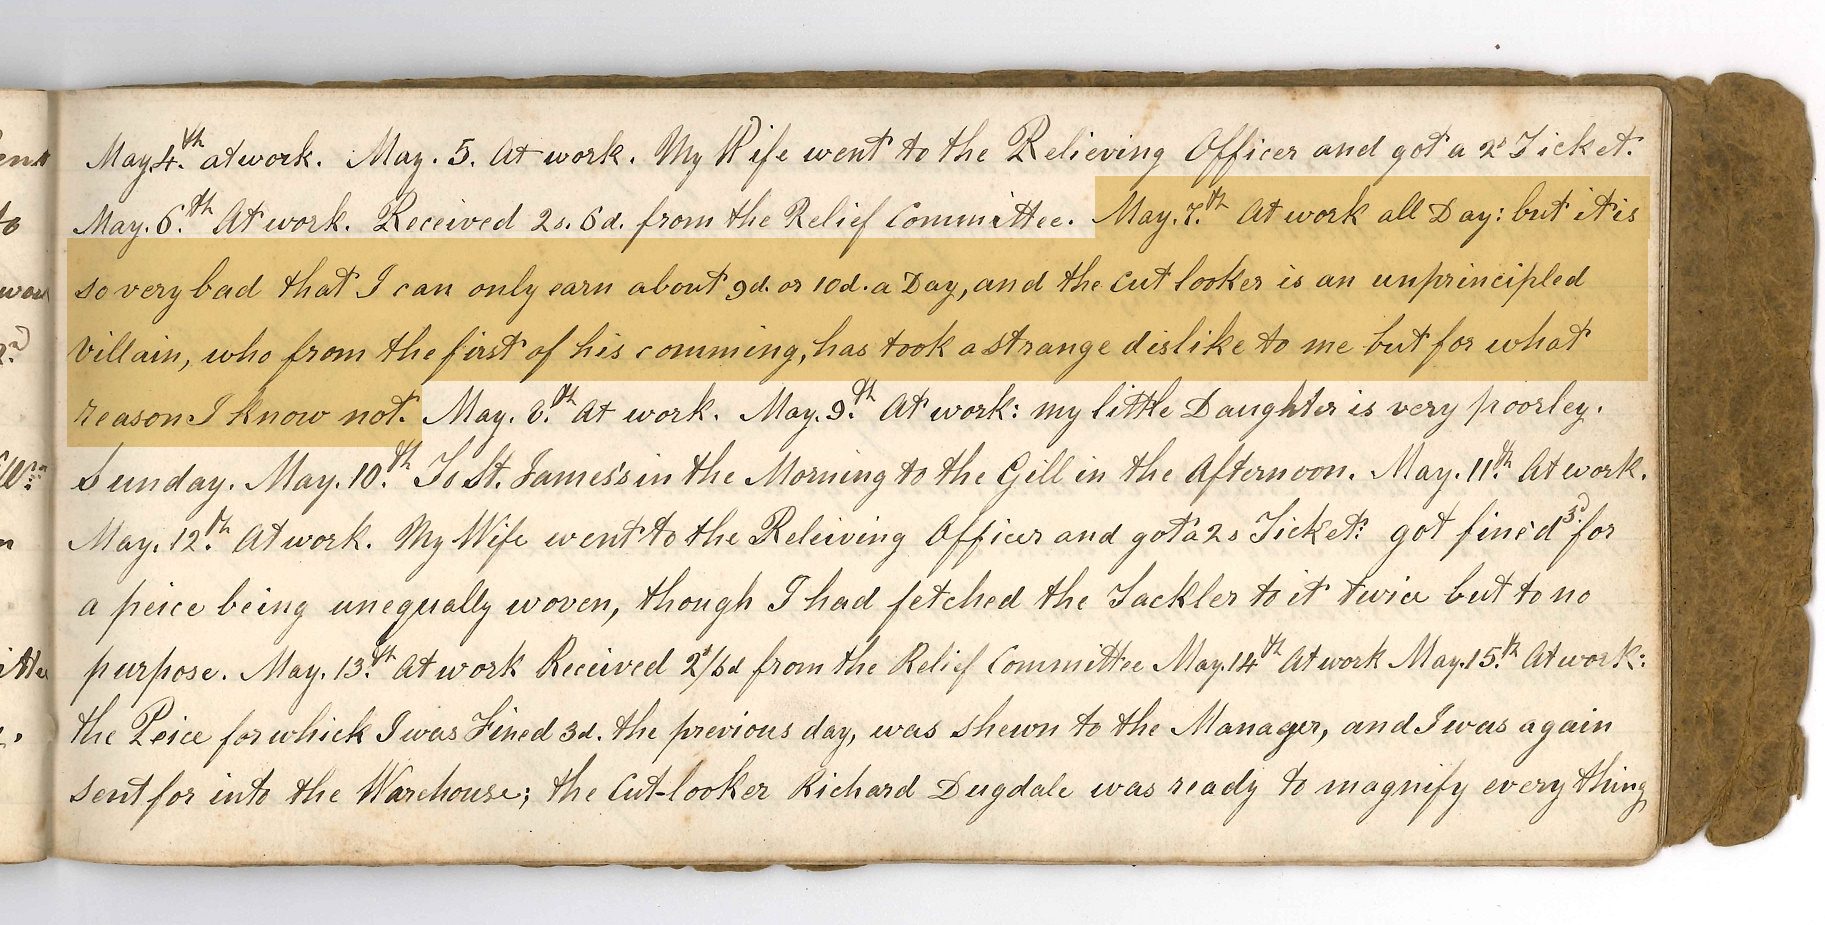 May 4.th at work. May. 5. At work. My Wife went to the Relieving Officer and got a 2s Ticket.
May. 6.th At work. Received 2s. 6d. from the Relief Committee. May. 7.th At work all Day: but it is
so very bad that I can only earn about 9d. or 10d. a Day, and the Cut looker is an unprincipled
Villain, who from the first of his comming, has took a strange dislike to me but for what
reason I know not. May. 8.th At work. May. 9.th At work: my little Daughter is very poorley.
Sunday. May. 10.th To St. James's in the Morning to the Gill in the Afternoon. May. 11.th At work.
May. 12.th At work. My Wife went to the Releiving Officer and got a 2s Ticket: got fine'd 3d. for
a peice being unequally woven, though I had fetched the Tackler to it twice but to no
purpose. May. 13.th At work Received 2s/6d from the Relief Committee May. 14th At work May. 15.th At work:
the Peice for which I was Fined 3d. the previous day, was shewn to the Manager, and I was again
sent for into the Warehouse; the Cut-looker Richard Dugdale was ready to magnify every thing